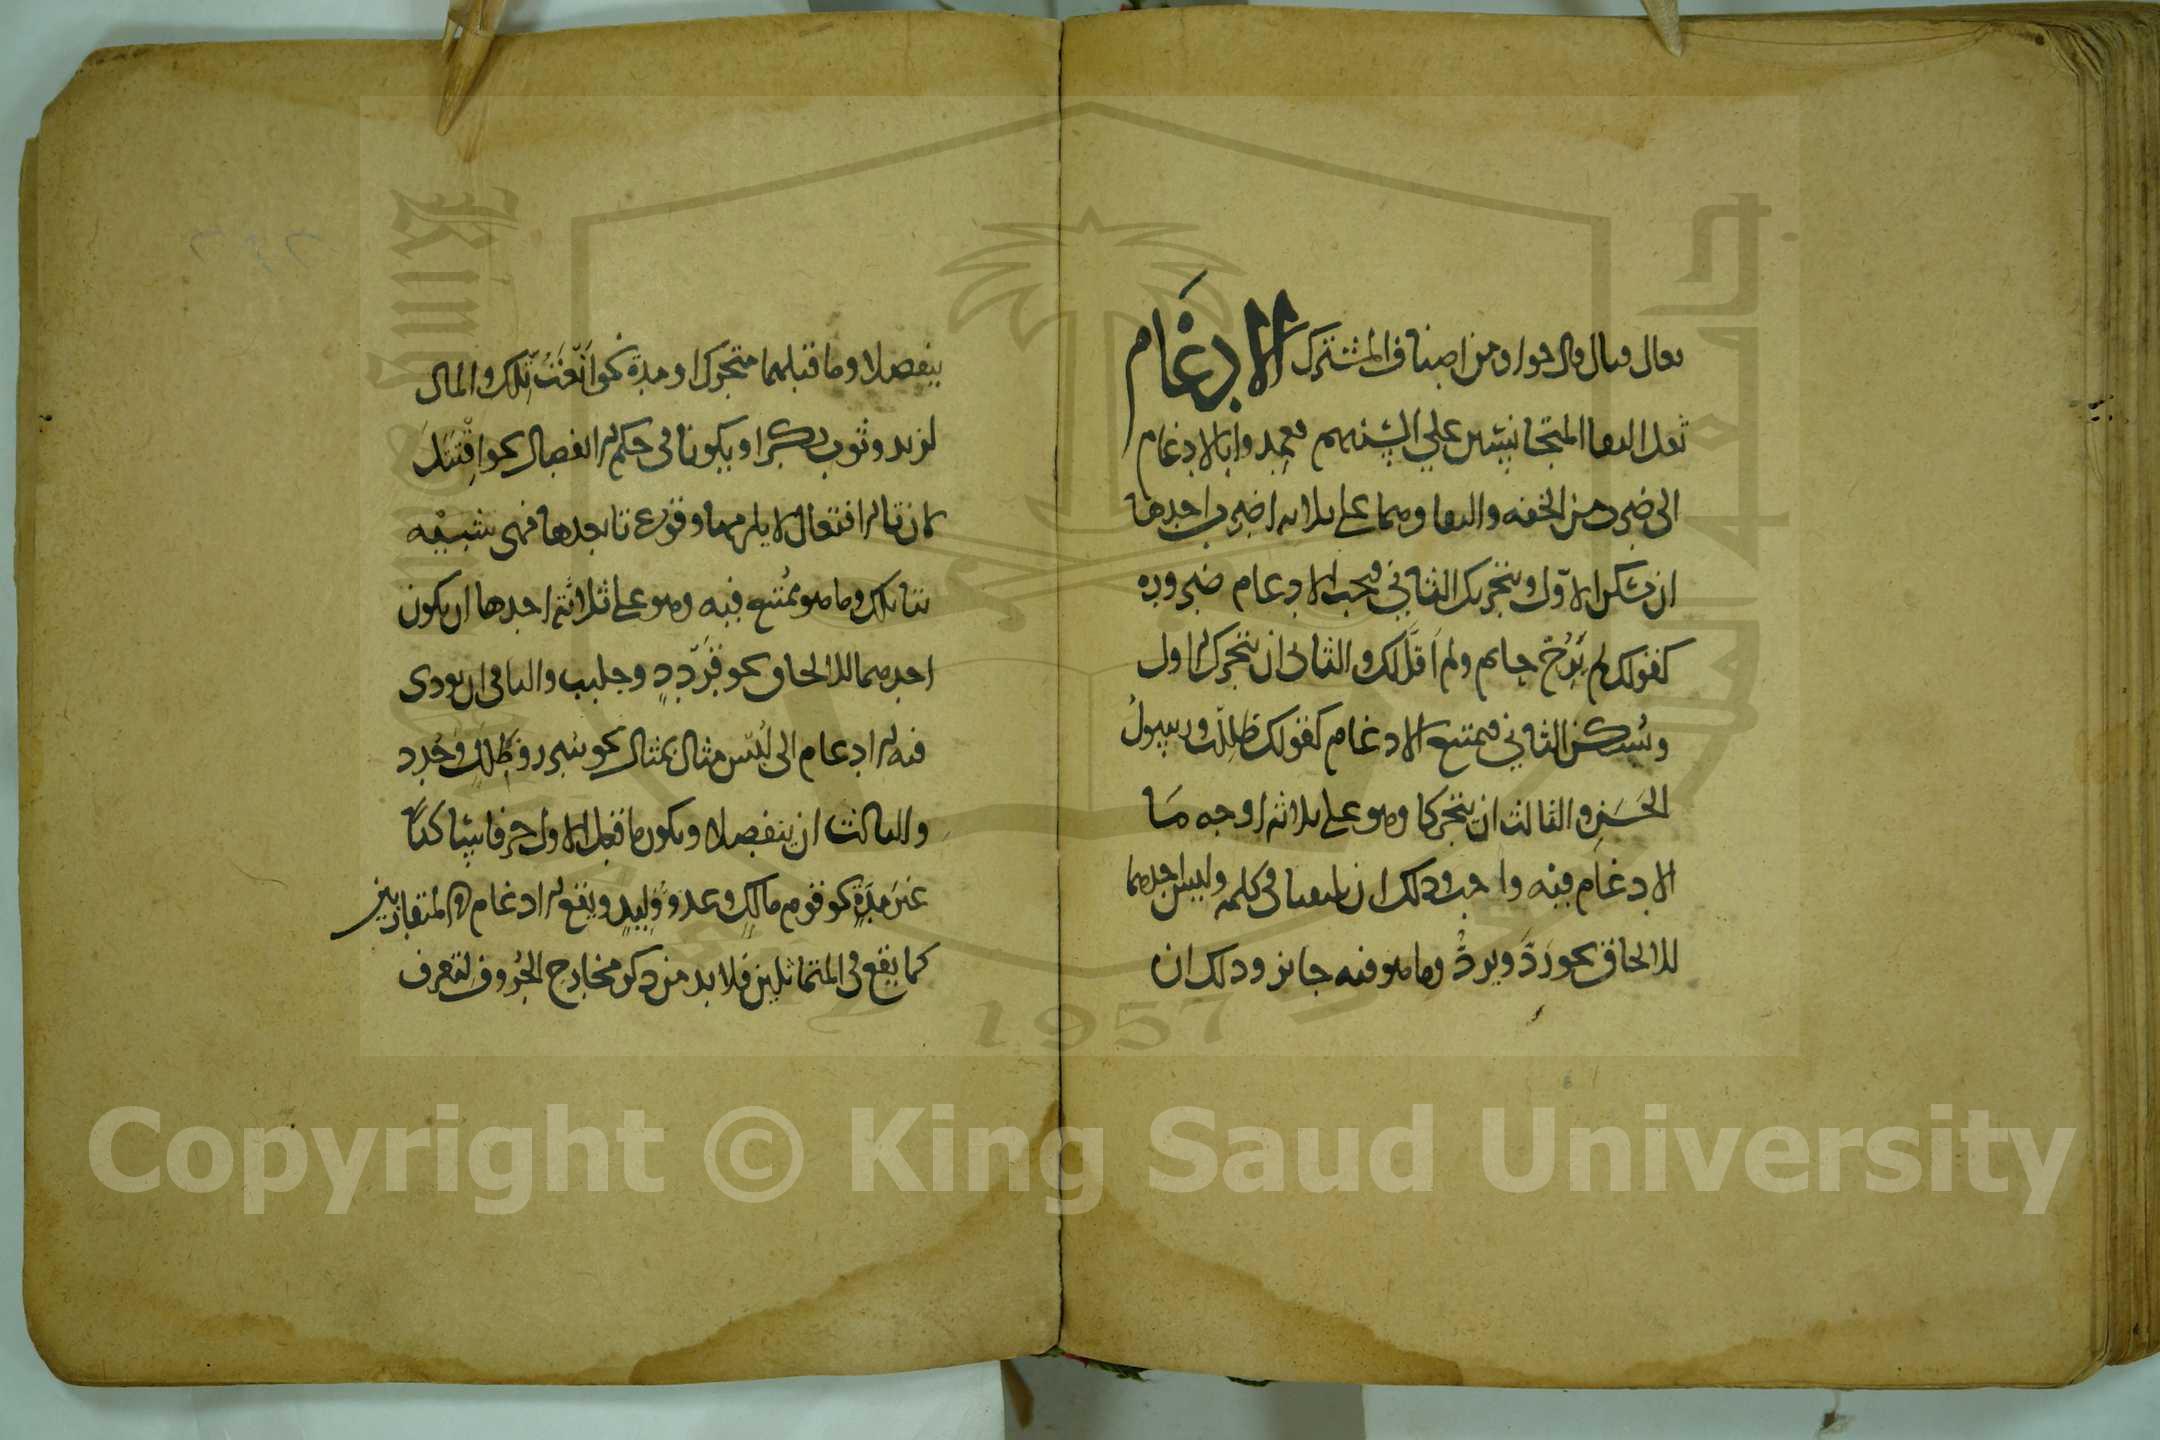 تعال وبال وال هوا ومن اصناف المشترك الادغام
ثقل التقا المتجانسين على السنتهم فعمدوا بالادغام
الى ضرب من الخفه والتقاوهما على ثلاثه اضرب احدها
ان يسكن الاول ويتحرك الثاني فيجب الادغام ضروره
كقولك لم يَرُحْ حاتم ولم اَقُل لك والثاني ان يتحرك الاول
ويُسكن الثاني فيمتنع الادغام كقولك ظللت ورسولُ
الحَسَن والثالث ان يتحركا وهو على ثلاثه اوجه مَا
الادغام فيه واجب وذلك ان يلتقيا في كلمه وليس احدهما
للالحاق نحو رَدَّ ويردُّ وما هو فيه جايز وذلك ان
ينفصلا وما قبلهما متحرك او مدة نحو اَنْعَتُ تِّلك والمال
لزيد وثوب بكر او يكونا في حكم الانفصال نحو اقْتَتَلَ
لان تا الافتعال لا يلزمها وقوع تا بعدها فهى شبيهه
بتا تلك وما هو ممتنع فيه وهو على ثلاثة احدها ان يكون
احدهما للالحاق نحو قَرْدَدٍ وجلبب والثاني ان يودى
فيه الادغام الى لَبس مثال بمثال نحو سُرر وطَلَل وجُدد
والثالث ان ينفصلا ويكون ما قبل الاول حرفا ساكناً
غيرَ مَدَّةٍ نحو قوم مالِكٍ وعدوُّ وَلِيدٍ ويقع الادغام في المتقاربين
كما يقع في المتماثلين فلا بد من ذكر مخارج الحُروف لتعرف
Copyright © King Saud University
King Saud University
جامعة الملك سعود
1957